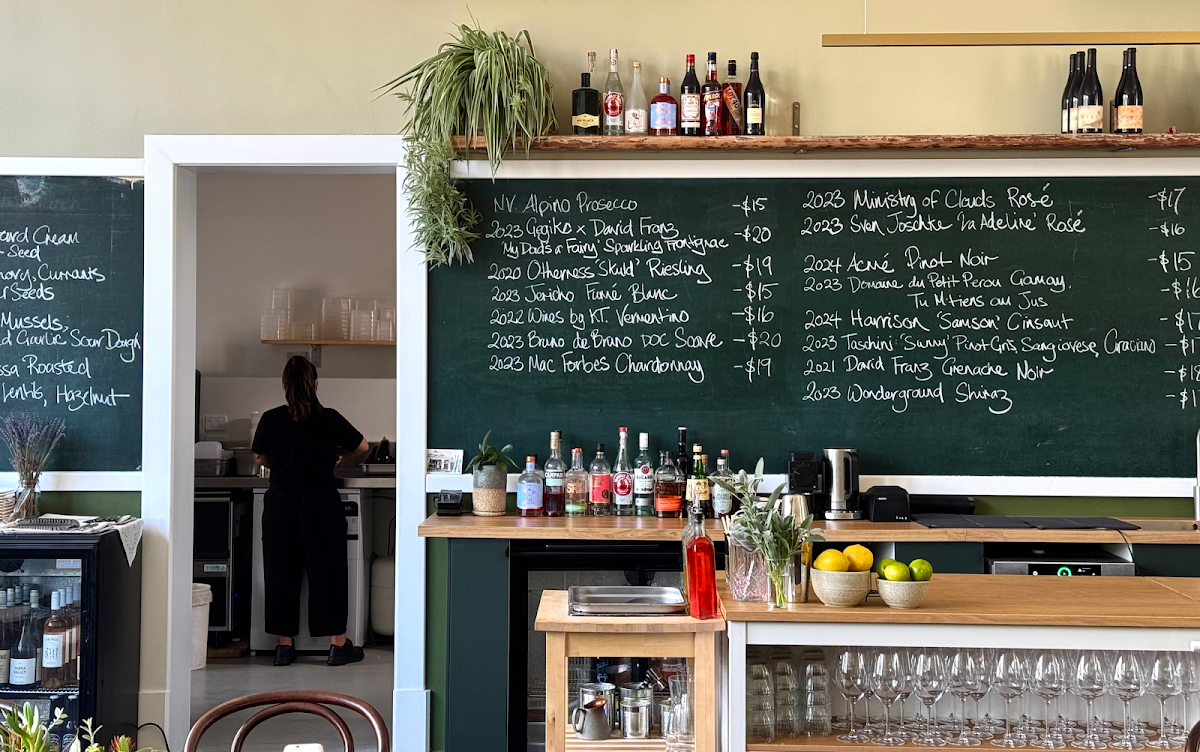 Cream
Seed
Currants
Seeds
Mussels,
Garlic Sour Dough
Roasted
Lentils, Hazelnut
NV Alpino Prosecco -$15
2023 Gigiko x David Franz
'My Dads a Fairy' Sparkling Frontignac -$20
2020 Otherness 'Skuld' Riesling -$19
2023 Jericho Fumé Blanc -$15
2022 Wines by KT. Vermentino -$16
2023 Bruno de Bruno DOC Soave -$20
2023 Mac Forbes Chardonnay -$19
2023 Ministry of Clouds Rosé -$17
2023 Sven Joschke 'La Adeline' Rosé -$16
2024 Acmé Pinot Noir -$15
2023 Domaine du Petit Perou Gamay.
Tu M'tiens au Jus
2024 Harrison 'Samson' Cinsaut
2023 Taschini 'Sunny' Pinot Gris, Sangiovese, Graciano
2021 David Franz Grenache Noir
2023 Wonderground Shiraz
CAMPARI